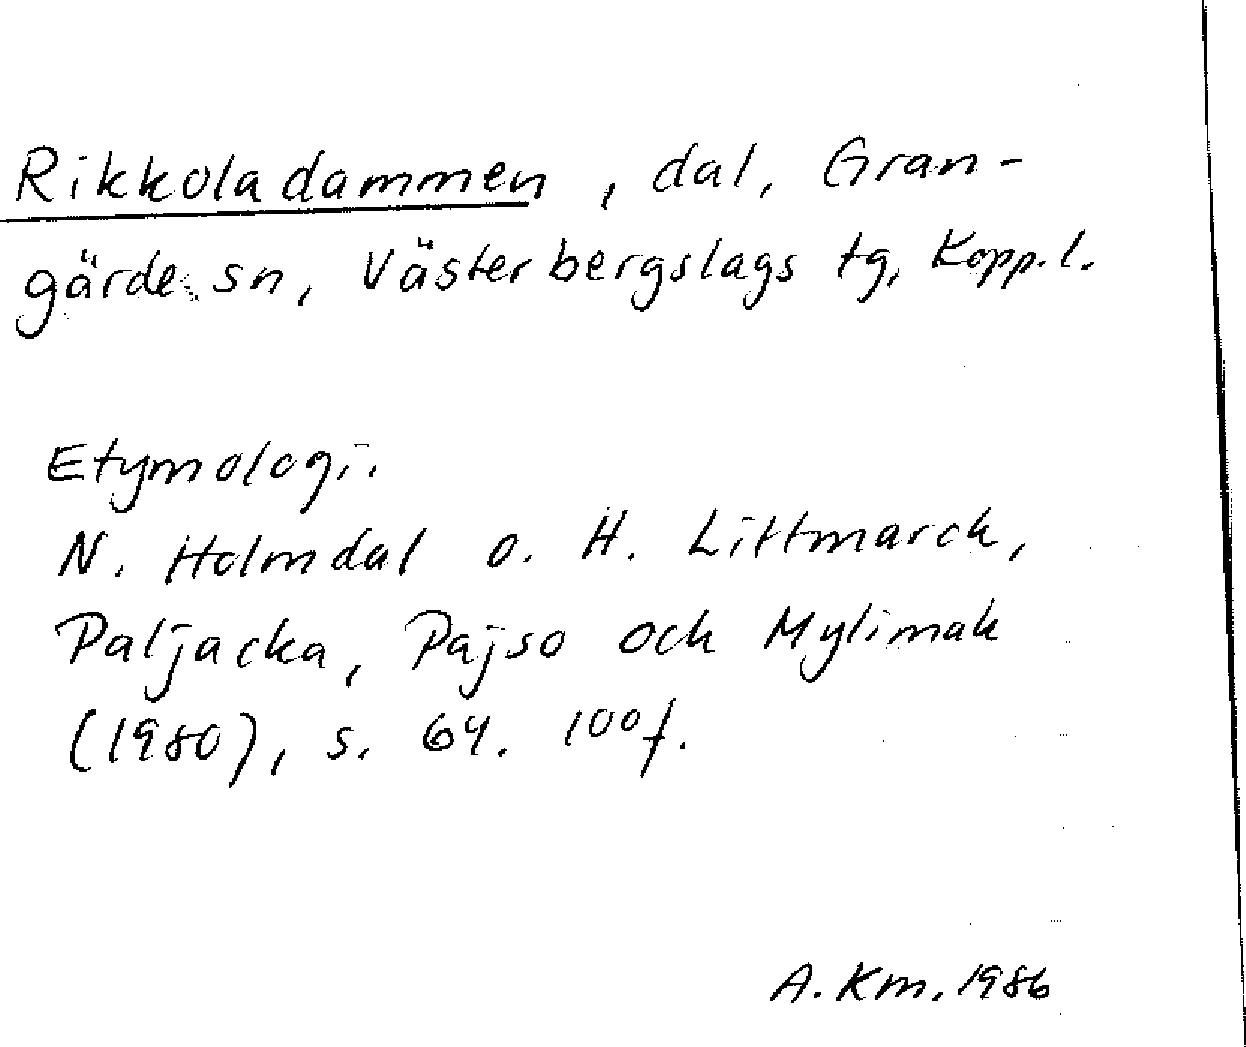 Rikkoladammen, dal, Gran-
gärde sn, Västerbergslags tg, Kopp.l.
Etymologi.
N. Holmdal o. H. Littmarck,
Paljacka, Pajso och Mylimak
(1980), s. 64. 100f.
A.Km. 1986